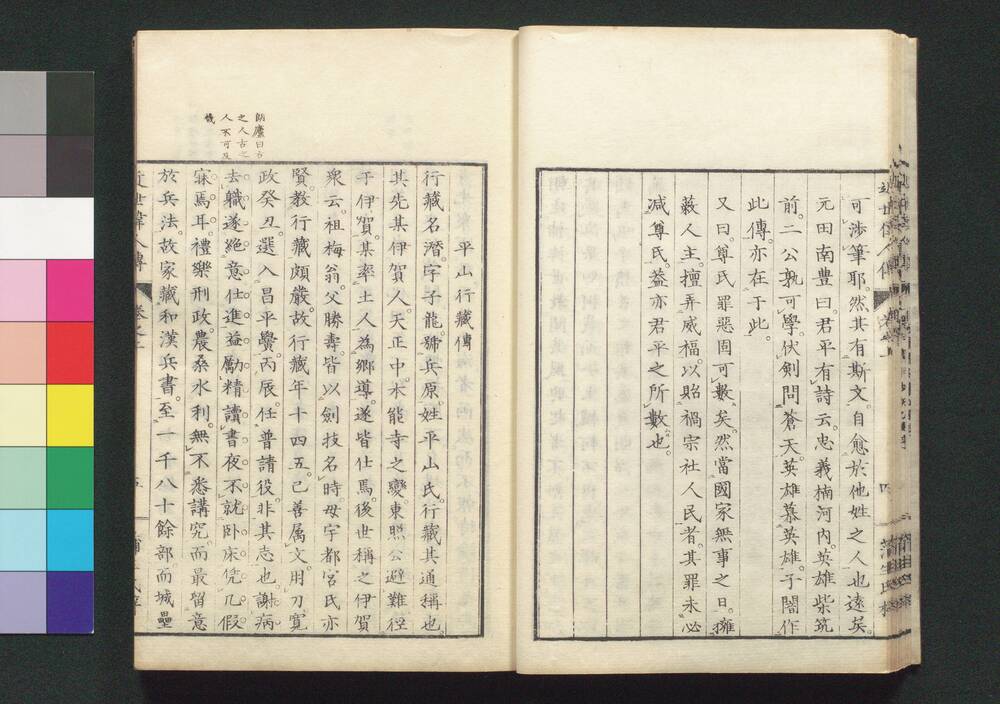 可渉筆耶。然其有斯文。自愈於他姓之人也遠矣。
元田南豊曰。君平有詩云。忠義楠河内。英雄柴筑
前。二公孰可學。伏劍問蒼天。英雄慕英雄。子闇作
此傳。亦在于此。
又曰。尊氏罪惡固可數矣。然當國家無事之日。擁
蔽人主。擅弄威福。以貽禍宗社人民者。其罪未必
減尊氏。蓋亦君平之所數也。
平山行藏傳
行藏名潛。字子龍。號兵原。姓平山氏。行藏其通稱也。
其先其伊賀人。天正中。本能寺之變。東照公避難徑
于伊賀。某率土人。為鄉導。遂皆仕焉。後世稱之伊賀
衆云。祖梅翁。父勝壽。皆以劍技名時。母宇都宮氏亦
賢。教行藏頗嚴。故行藏年十四五。已善属文。用刀。寛
政癸丑。選入昌平黌。丙辰。任普請役。非其志也。謝病
去職。遂絶意仕進。益勵精讀書。夜不就卧床。凭几假
寐焉耳。禮樂刑政。農桑水利。無不悉講究。而最留意
於兵法。故家藏和漢兵書。至一千八十餘部。而城壘
近世偉人傳
訥庵曰古
之人古之
人不可及
幾